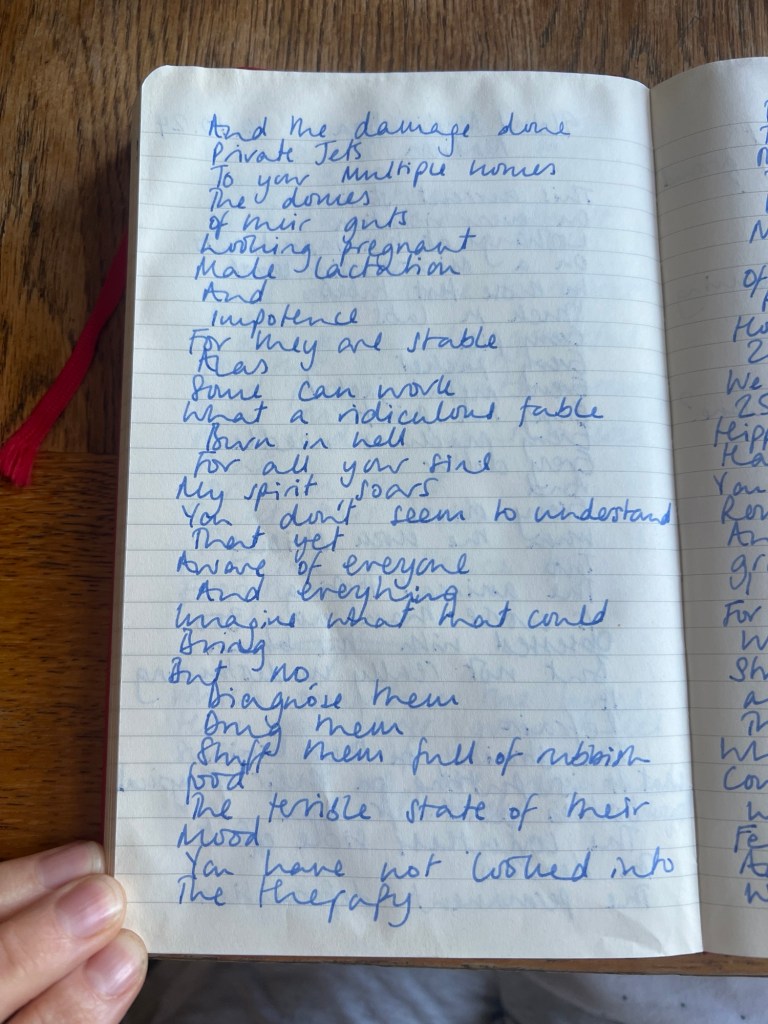 And the damage done
Private Jets
To your Multiple homes
The domes
of their guts
Looking pregnant
Male lactation
And
Impotence
For they are stable
Alas
Some can work
What a ridiculous fable
Burn in hell
For all your sins
My spirit soars
You don't seem to understand
That yet
Aware of everyone
And everything
Imagine what that could
Bring
But no
Diagnose them
Drug them
Stuff them full of rubbish
food
The terrible state of their
Mood
You have not looked into
The therapy
Of
We
25
Hipp
Ha
You
An
gr
For
W
Sh
a
Th
Wh
Cou
W
Fe
W